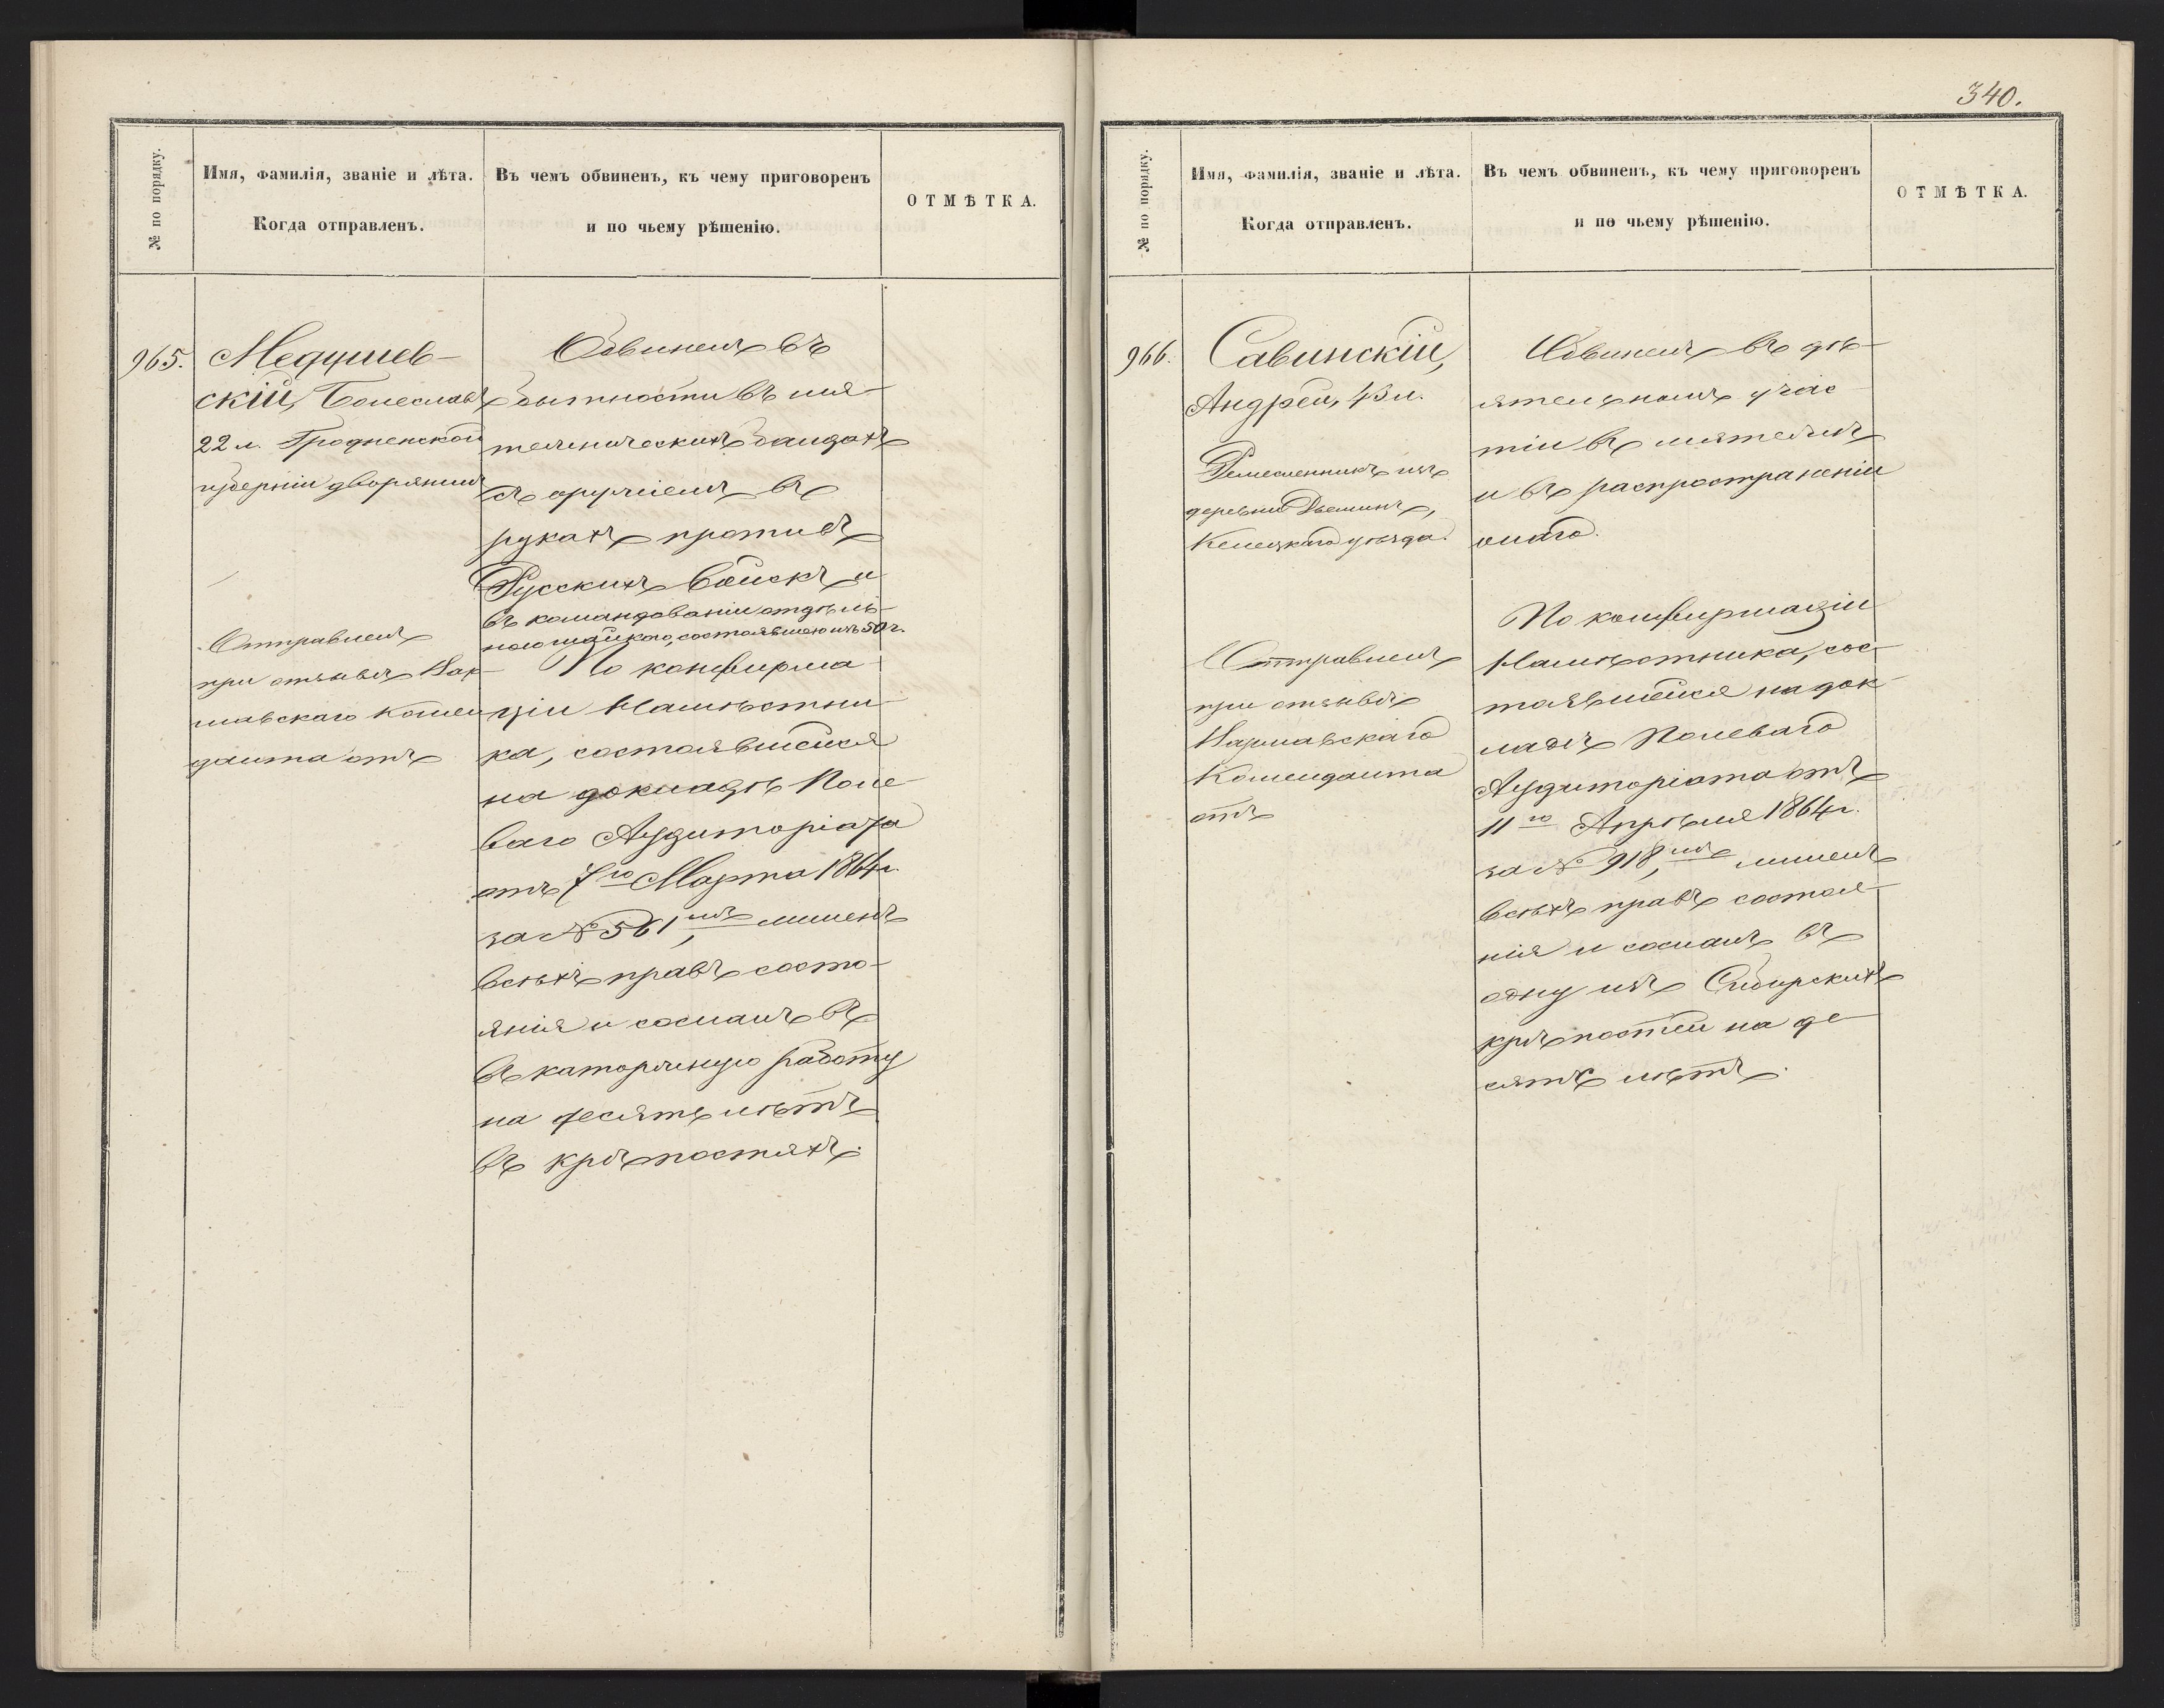 № по порядку.
Имя, фамилія, званіе и лѣта.
Когда отправленъ.
Въ чемъ обвиненъ, къ чему приговоренъ
и по чьему рѣшенію.
ОТМѢТКА.
965.
Медушев-
скій, Болеславъ
22 л. Гродненской
губерніи дворянинъ
Отправленъ
при отзывѣ Вар-
шавскаго комен
данта отъ
Обвиненъ въ
бытности въ мя-
тежническихъ бандахъ
съ оружіемъ въ
рукахъ противъ
Русскихъ войскъ и
въ командованіи отдѣль-
ною шайкою, состоявшею изъ 50 ч.
По конфирма-
ціи Намѣстни-
ка, состоявшейся
на докладѣ Поле-
ваго Аудиторіата
отъ 7го Марта 1864 г.
за № 561, мъ лишенъ
всѣхъ правъ состо-
янія и сосланъ въ
въ каторжную работу
на десять лѣтъ
въ крѣпостяхъ.
340.
№ по порядку.
Имя, фамилія, званіе и лѣта.
Когда отправленъ.
Въ чемъ обвиненъ, къ чему приговоренъ
и по чьему рѣшенію.
ОТМѢТКА.
966.
Савинскій,
Андрей, 43 л.
Ремесленникъ изъ
деревни
Келецкаго уѣзда.
Отправленъ
при отзывѣ
Варшавскаго
Коменданта
отъ
Обвиненъ въ дѣ-
ятельномъ учас
тіи въ мятежѣ
и въ распространеніи
онаго.
По конфирмаціи
Намѣстника, сос-
тоявшейся на док
ладѣ Полеваго
Аудиторіата отъ
11го Апрѣля 1864 г.
за № 918, мъ лишенъ
всѣхъ правъ состоя-
нія и сосланъ въ
одну изъ Сибирскихъ
крѣпостей на де-
сять лѣтъ.